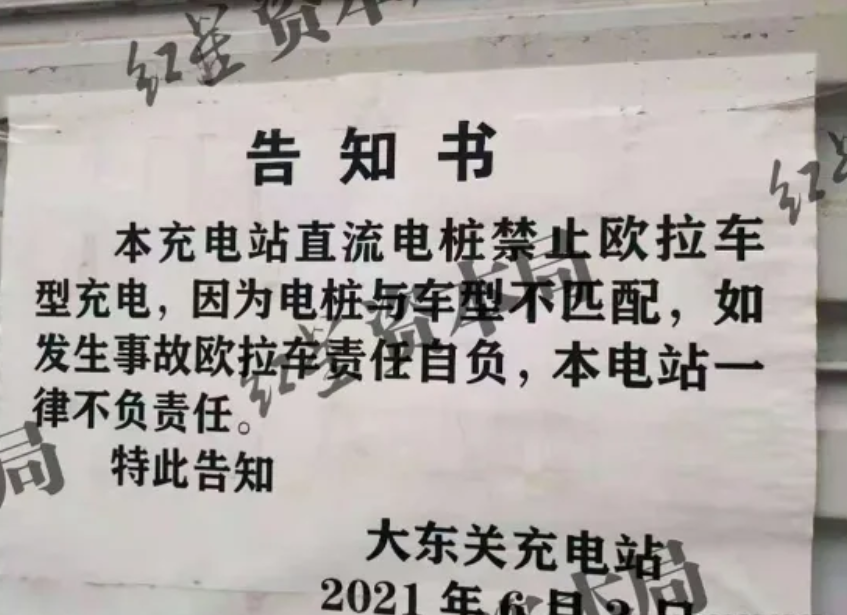 红星资本局
告知书
红星
本充电站直流电桩禁止欧拉车
型充电，因为电桩与车型不匹配，如
发生事故欧拉车责任自负，本电站一
律不负责任。
红星资本局
特此告知
局
大东关充电站
2021年6月
本局